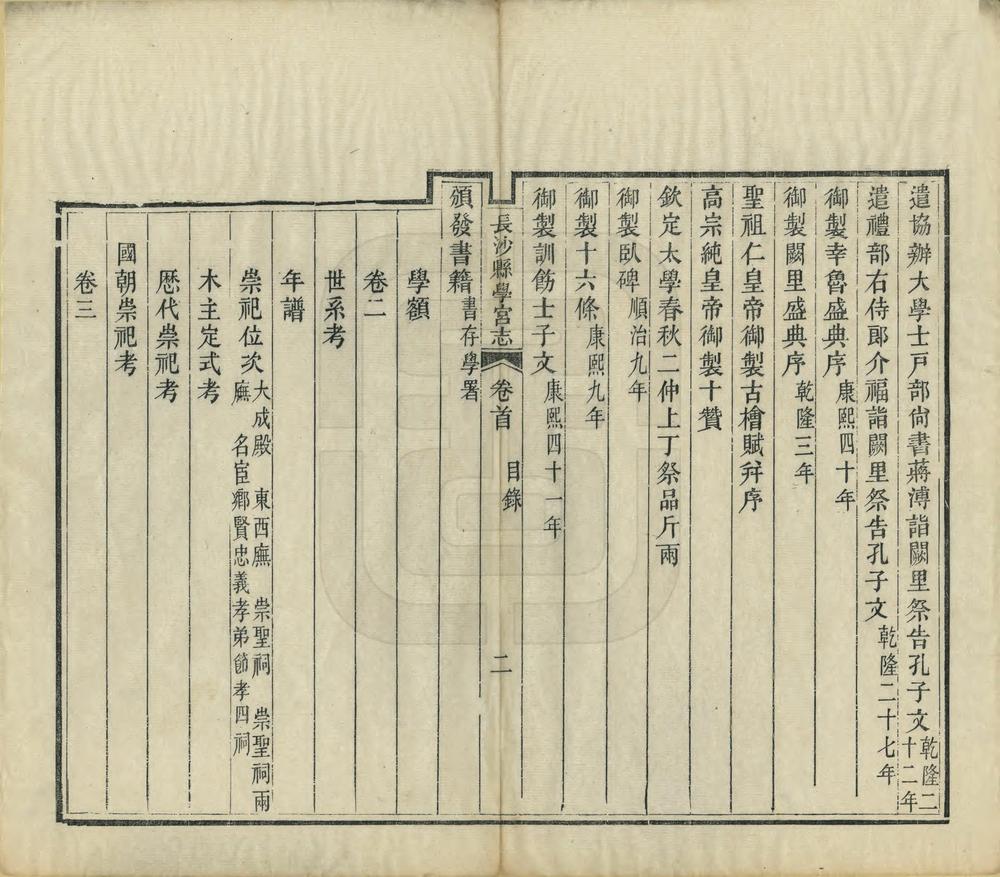 遣協辦大學士戶部尙書蔣溥詣闕里祭告孔子文乾隆二十二年
遣禮部右侍郞介福詣闕里祭告孔子文乾隆二十七年
御製幸魯盛典序康熙四十年
御製闕里盛典序乾隆三年
聖祖仁皇帝御製古檜賦幷序
高宗純皇帝御製十贊
欽定太學春秋二仲上丁祭品斤兩
御製臥碑順治九年
御製十六條康熙九年
御製訓飭士子文康熙四十一年
長沙縣學宮志 卷首 目錄 二
頒發書籍書存學署
學額
卷二
世系考
年譜
崇祀位次大成殿 東西廡 崇聖祠 崇聖祠兩廡 名宦鄕賢忠義孝弟節孝四祠
木主定式考
歷代崇祀考
國朝崇祀考
卷三